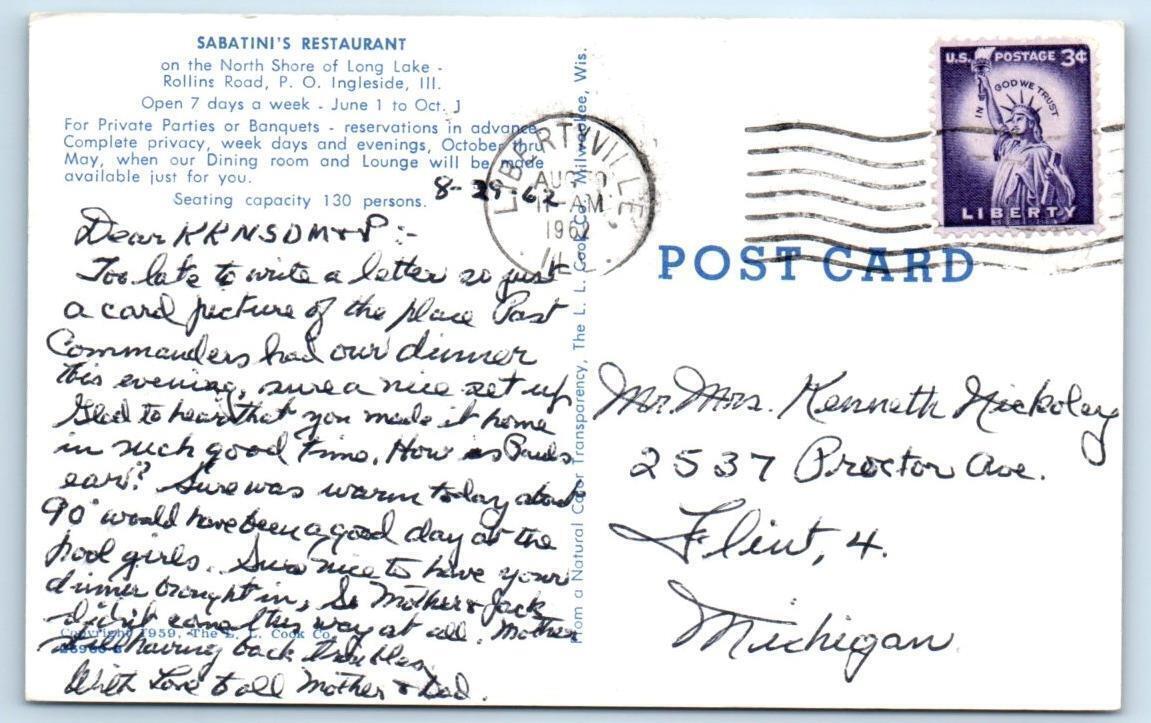 SABATINI'S RESTAURANT
on the North Shore of Long Lake -
Rollins Road, P. O. Ingleside, Ill.
Open 7 days a week - June 1 to Oct. 1
For Private Parties or Banquets - reservations in advance
Complete privacy, week days and evenings, October thru
May, when our Dining room and Lounge will be made
available just for you.
Seating capacity 130 persons.
8-29-62
Dear KKNSDM+P:-
Too late to write a letter so just
a card picture of the place Past
Commanders had our dinner
this evening, sure a nice set up
Glad to hear that you made it home
in such good time. How is Pauls
ear? Sure was warm today about
90° would have been a good day at the
pool girls. Sure nice to have your
dinner brought in, So Mother & Jack
didn't come this way at all. Mother
still having back troubles.
With Love to all Mother & Dad.
Copyright 1959, The L. L. Cook Co.
From a Natural Color Transparency, The L. L. Cook Co. Milwaukee, Wis.
LIBERTYVILLE,
AUG 30
11-AM
1962
ILL
U.S. POSTAGE 3¢
IN GOD WE TRUST
LIBERTY
POST CARD
Mr. Mrs. Kenneth Nickoley
2537 Proctor Ave.
Flint, 4.
Michigan